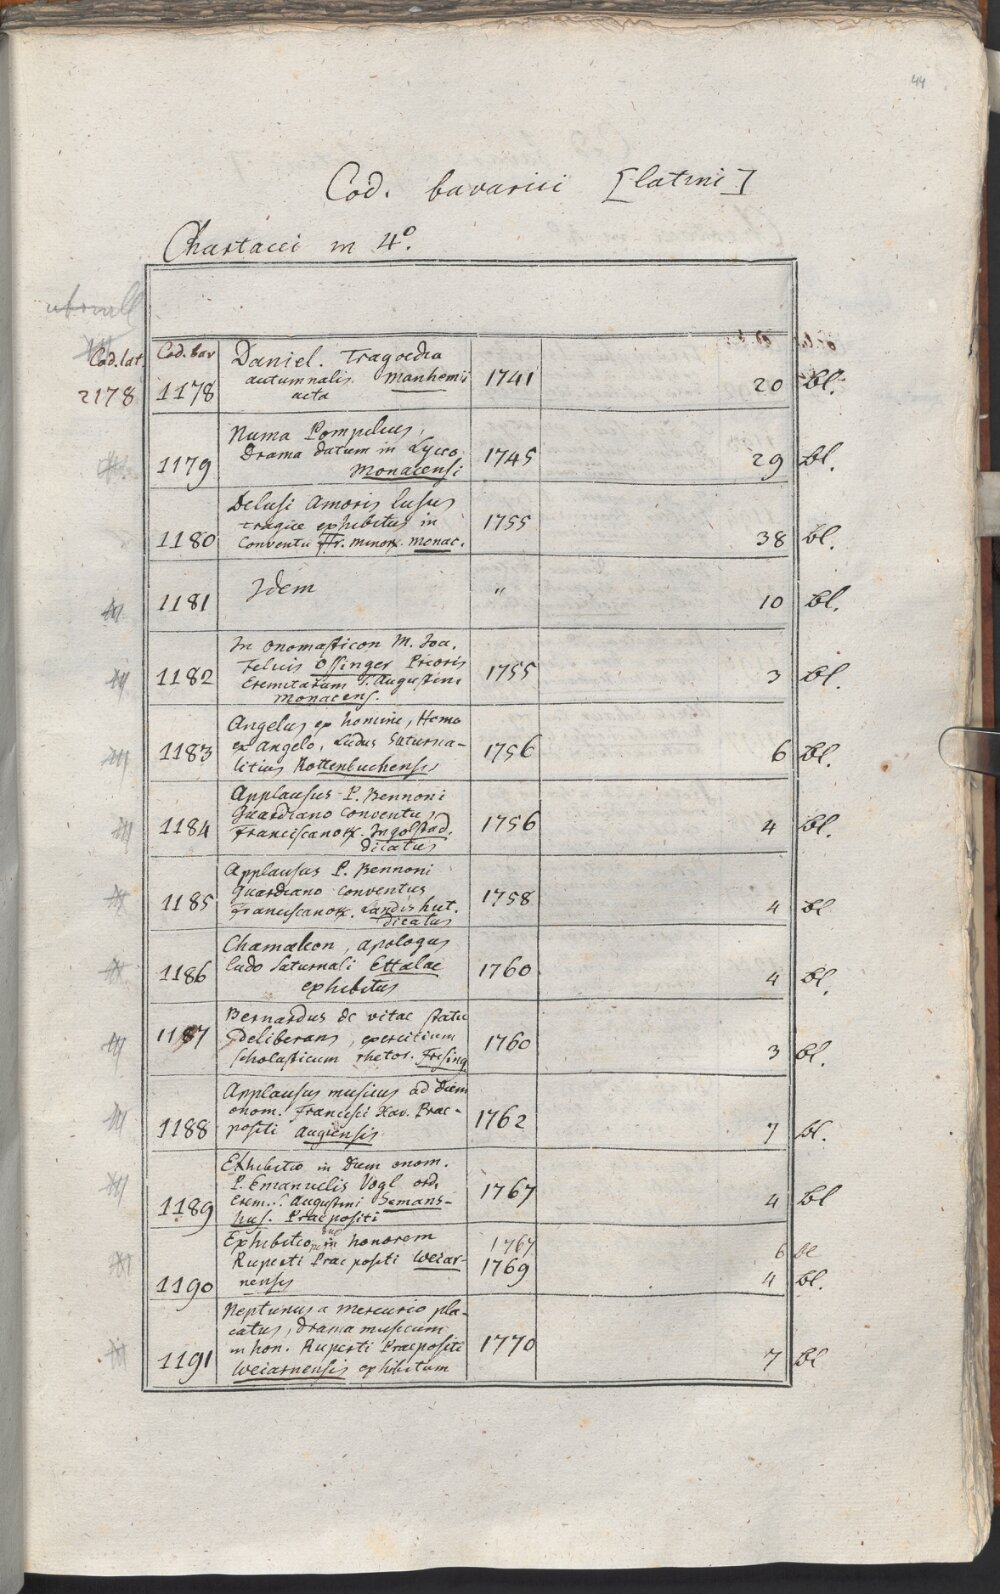 44
Cod. bavarici [latini]
Chartacei in 4º.
Cod. lat. Cod. bav
2178 1178 Daniel. Tragoedia
autumnalis Manhemii
acta 1741 20 bl.
1179 Numa Pompilius,
Drama datum in Lyceo
Monacensi 1745 29 bl.
1180 Delusi Amoris lusus
tragice exhibitus in
Conventu Fr. Minor. monac. 1755 38 bl.
1181 Idem " 10 bl.
1182 In onomasticon M. Joa.
Felicis Ossinger Prioris
Eremitarum S. Augustini
Monacens. 1755 3 bl.
1183 Angelus ex homine, Homo
ex Angelo, Ludus Saturna-
litius Rottenbuchensis 1756 6 bl.
1184 Applausus P. Bennoni
Guardiano conventus
Franciscanor. Ingolstad.
dicatus 1756 4 bl.
1185 Applausus P. Bennoni
Guardiano conventus
Franciscanor. Landishut.
dicatus 1758 4 bl
1186 Chamaleon, apologus
ludo saturnali Ettalae
exhibitus 1760 4 bl.
1187 Bernardus de vitae statu
deliberans, exercitium
scholasticum rhetor. Frising 1760 3 bl.
1188 Applausus musicus ad diem
onom. Francisci Xav. Prae-
positi Augiensis 1762 7 bl.
1189 Exhibitio in diem onom.
P. Emanuelis Vogl ord.
Erem. S. Augustini Semans-
hus. Praepositi 1767 4 bl
1190 Exhibitio in honorem
Ruperti Praepositi Weiar-
nensis 1767 6 bl
1769 4 bl.
1191 Neptunus a Mercurio pla-
catus, drama musicum
in hon. Ruperti Praepositi
Weiarnensis exhibitum 1770 7 bl